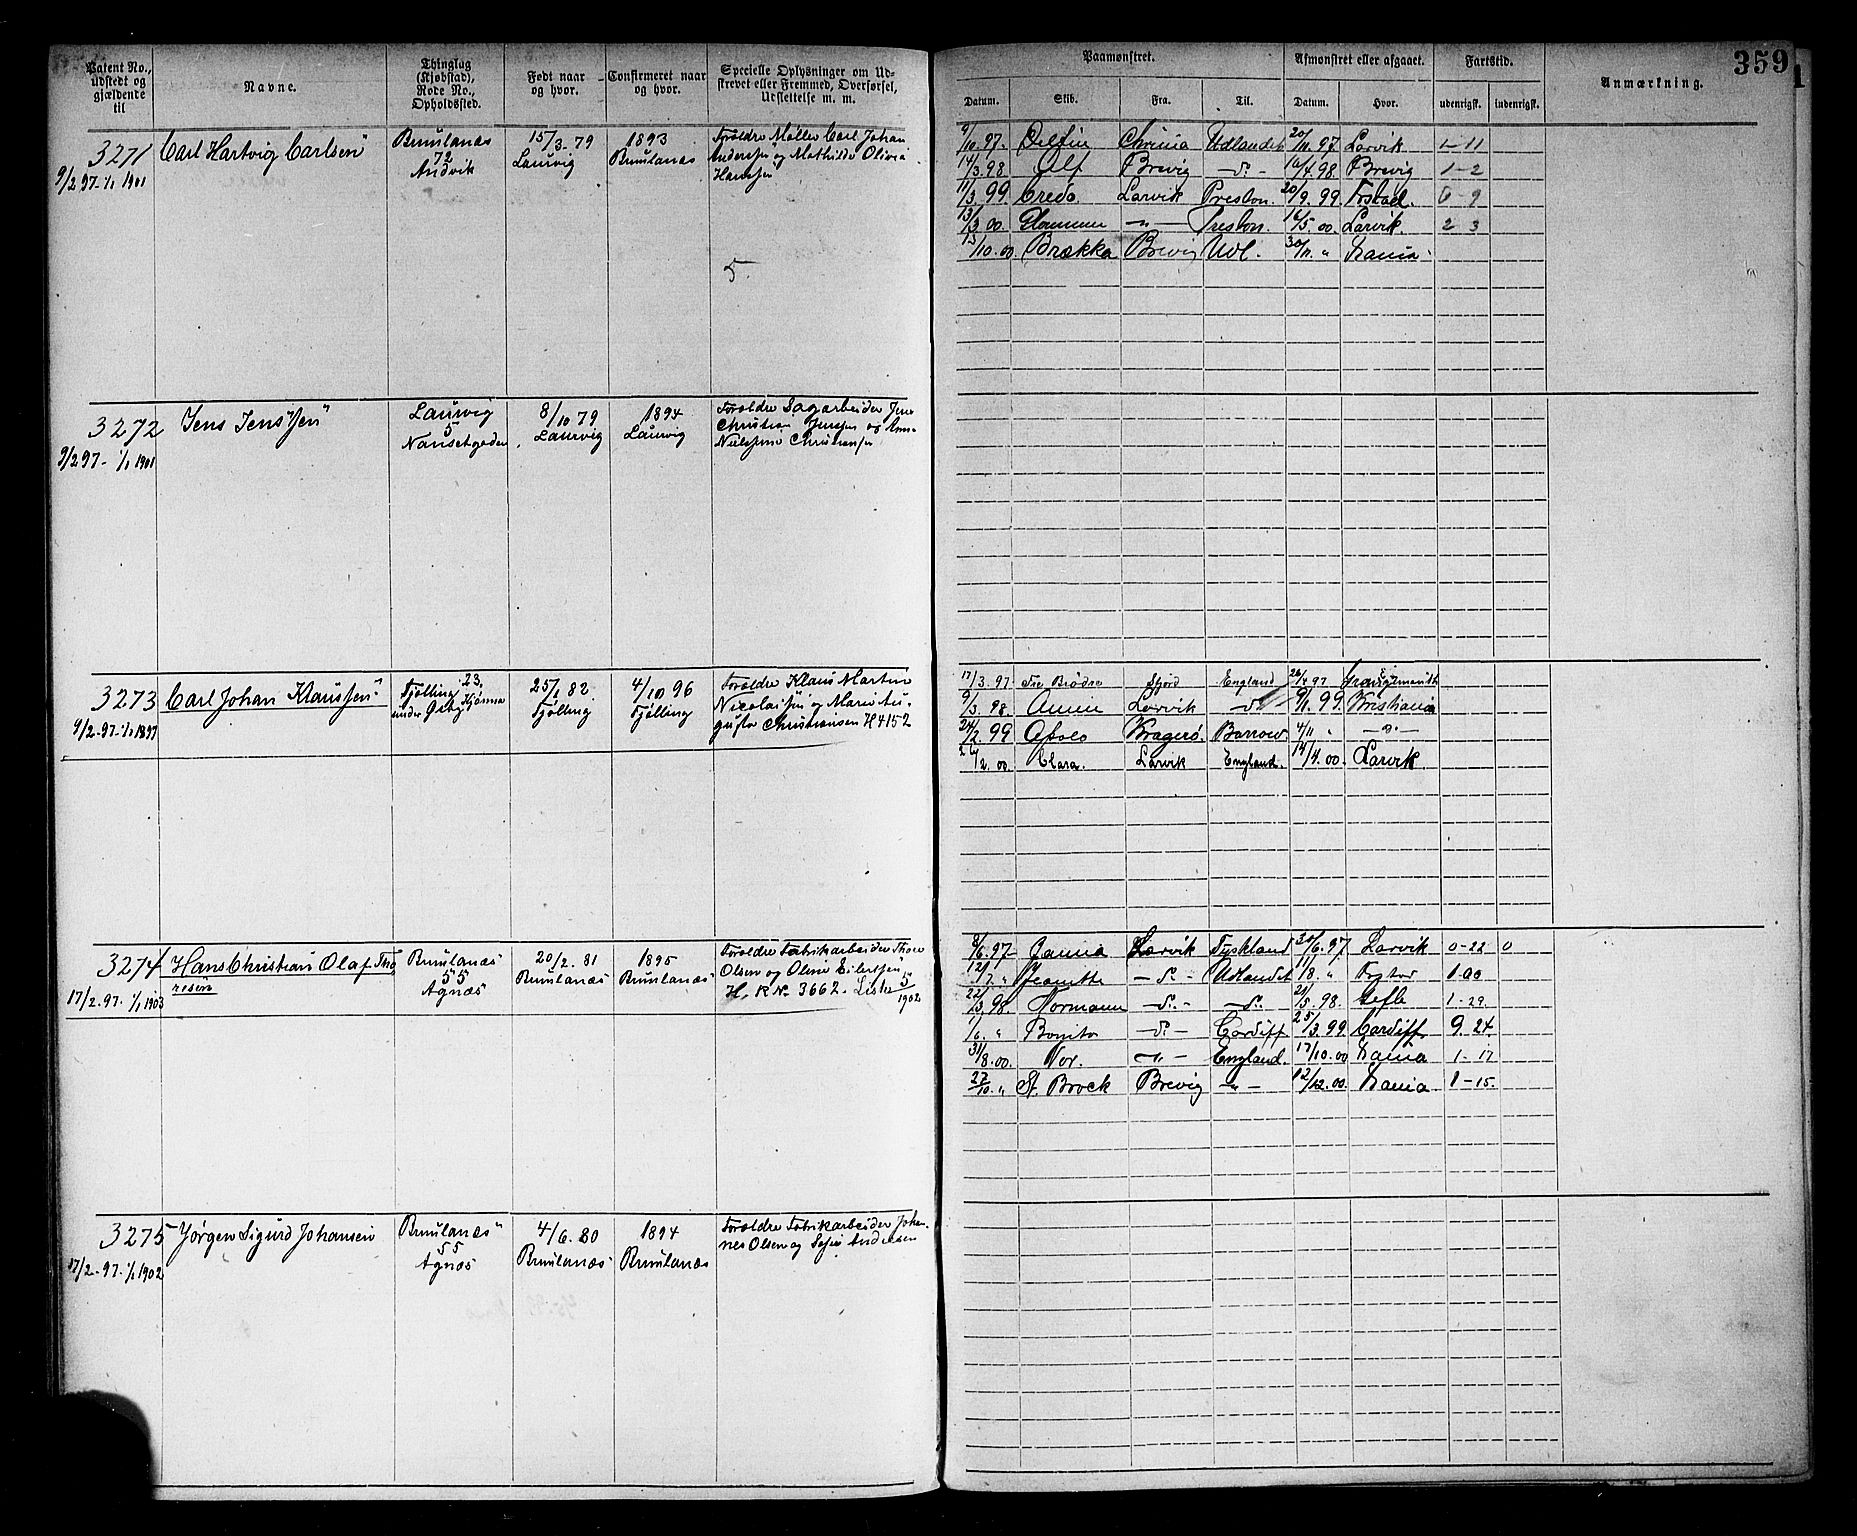 359
1
Patent No., udstedt og gjældende til
Navne.
Thinglag (Kjøbstad), Rode No., Opholdssted.
Født naar og hvor.
Confirmeret naar og hvor.
Specielle Oplysninger om Udskrevet eller Fremmed, Overførsel, Udslettelse m. m.
Paamønstret.
Afmønstret eller afgaaet.
Fartstid.
Anmærkning.
Datum.
Skib.
Fra.
Til.
Datum.
Hvor.
udenrigsk.
indenrigsk.
3271
9/2 97 - 1/1 1901
Carl Hartvig Carlsen
Brunlanes
72
Andvik
15/3 - 79
Laurvig
1893
Brunlanæs
Forældre Møller Carl Johan
Anderssen og Mathilde Olivia
Hanssen
5.
9/10 97. Delfin Chrinia Udlandet 20/11. 97 Larvik 1-11
14/3. 98 Alf Brevig - do - 16/4. 98 Brevig 1-2
11/3 99 Credo Larvik Preston. 20/9. 99 Fr.stad. 6-9
13/3. 00 Glommen - " - Preston. 16/5. 00 Larvik. 2 3
13/10. 00 Brækka Brevig Udl. 30/11. "
3272
9/2 97 - 1/1 1901
Jens Jenssen
Laurvig
5
Nansetgaden
8/10 79
Laurvig
1894
Laurvig
Forældre Sagarbeider Jens
Christian Jenssen og
3273
9/2 - 97 - 1/1 1897
Carl Johan Klaussen
Tjølling 23,
under
25/1 82.
Tjølling
4/10 96
Tjølling
Forældre Klaus Martin
Nicolaissen og Marie Au-
gusta Christiansen H 4152
17/3. 97 Tre Brødre England 26/4 97
9/3. 98 Larvik - do 9/1. 99. Kristiania
24/2. 99 Kragerø. Barrow. 4/11 " - " -
2. 00. Clara. Larvik England. 14/4. 00. Larvik
3274
17/2. 97. 1/1 1903
Hans Christian Olaf Tho
resen
Brunlanæs
55
Agnæs
20/2. 81
Brunlanæs
1895
Brunlanæs
Forældre Fabrikarbeider Thore
Olsen og Oline Eilertsen
H. R No. 3662. Liste
1902
8/5. 97 - Larvik Tyskland 30/6. 97 Larvik 0-22 0
12/7. " Jeanette - do - Udlandet 11/8. " 1.00
22/3. 98. Normann - do - - do - 21/5. 98. Gefle 1-29.
1/6. " Bonita - do - Cardiff 25/3. 99 Cardiff 9. 24
31/8. 00. Nor. - " - England. 17/10. 00 1-17
27/10. " St. Brock Brevig - " - 12/12. 00. 1-15.
3275
17/2 - 97. 1/1 1902
Jørgen Sigurd Johansen
Brunlanæs
55
Agnæs
4/6. 80
Brunlanæs
1894
Brunlanæs
Forældre Fabrikarbeider Johan-
nes Olsen og Sofie Andersen